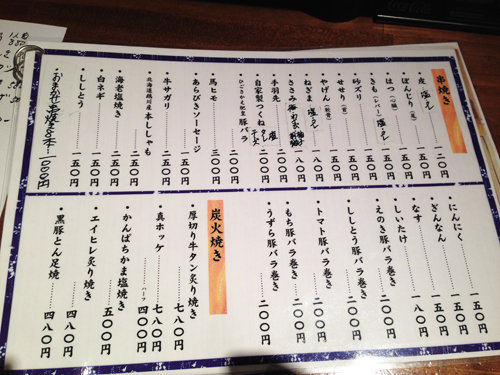 串焼き
・皮 塩・タレ 一二〇円
・ぼんじり(尾) 一五〇円
・はつ(心臓) 一五〇円
・きも(レバー)塩・タレ 一五〇円
・砂ズリ 一五〇円
・せせり(首) 一五〇円
・やげん(軟骨) 一五〇円
・ねぎま 塩・タレ 一八〇円
・ささみ 一八〇円
・手羽先 二〇〇円
・自家製つくね タレ 塩 チーズ
・豚バラ 二〇〇円
・馬ヒモ 三〇〇円
・あらびきソーセージ 二〇〇円
・牛サガリ 二五〇円
・北海道鵡川産本ししゃも 二五〇円
・海老塩焼き 二五〇円
・白ネギ 一五〇円
・ししとう 一五〇円
・おまかせ串焼き 1000円
・にんにく 一五〇円
・ぎんなん 一五〇円
・なす 一五〇円
・しいたけ 一八〇円
・えのき豚バラ巻き 二〇〇円
・ししとう豚バラ巻き 二〇〇円
・トマト豚バラ巻き 二〇〇円
・もち豚バラ巻き 二〇〇円
・うずら豚バラ巻き 二〇〇円
炭火焼き
・厚切り牛タン炙り焼き 七八〇円
・真ホッケ 七八〇円
ハーフ 四〇〇円
・かんぱちかま塩焼き 五〇〇円
・エイヒレ炙り焼き 四八〇円
・黒豚とん足焼 四八〇円